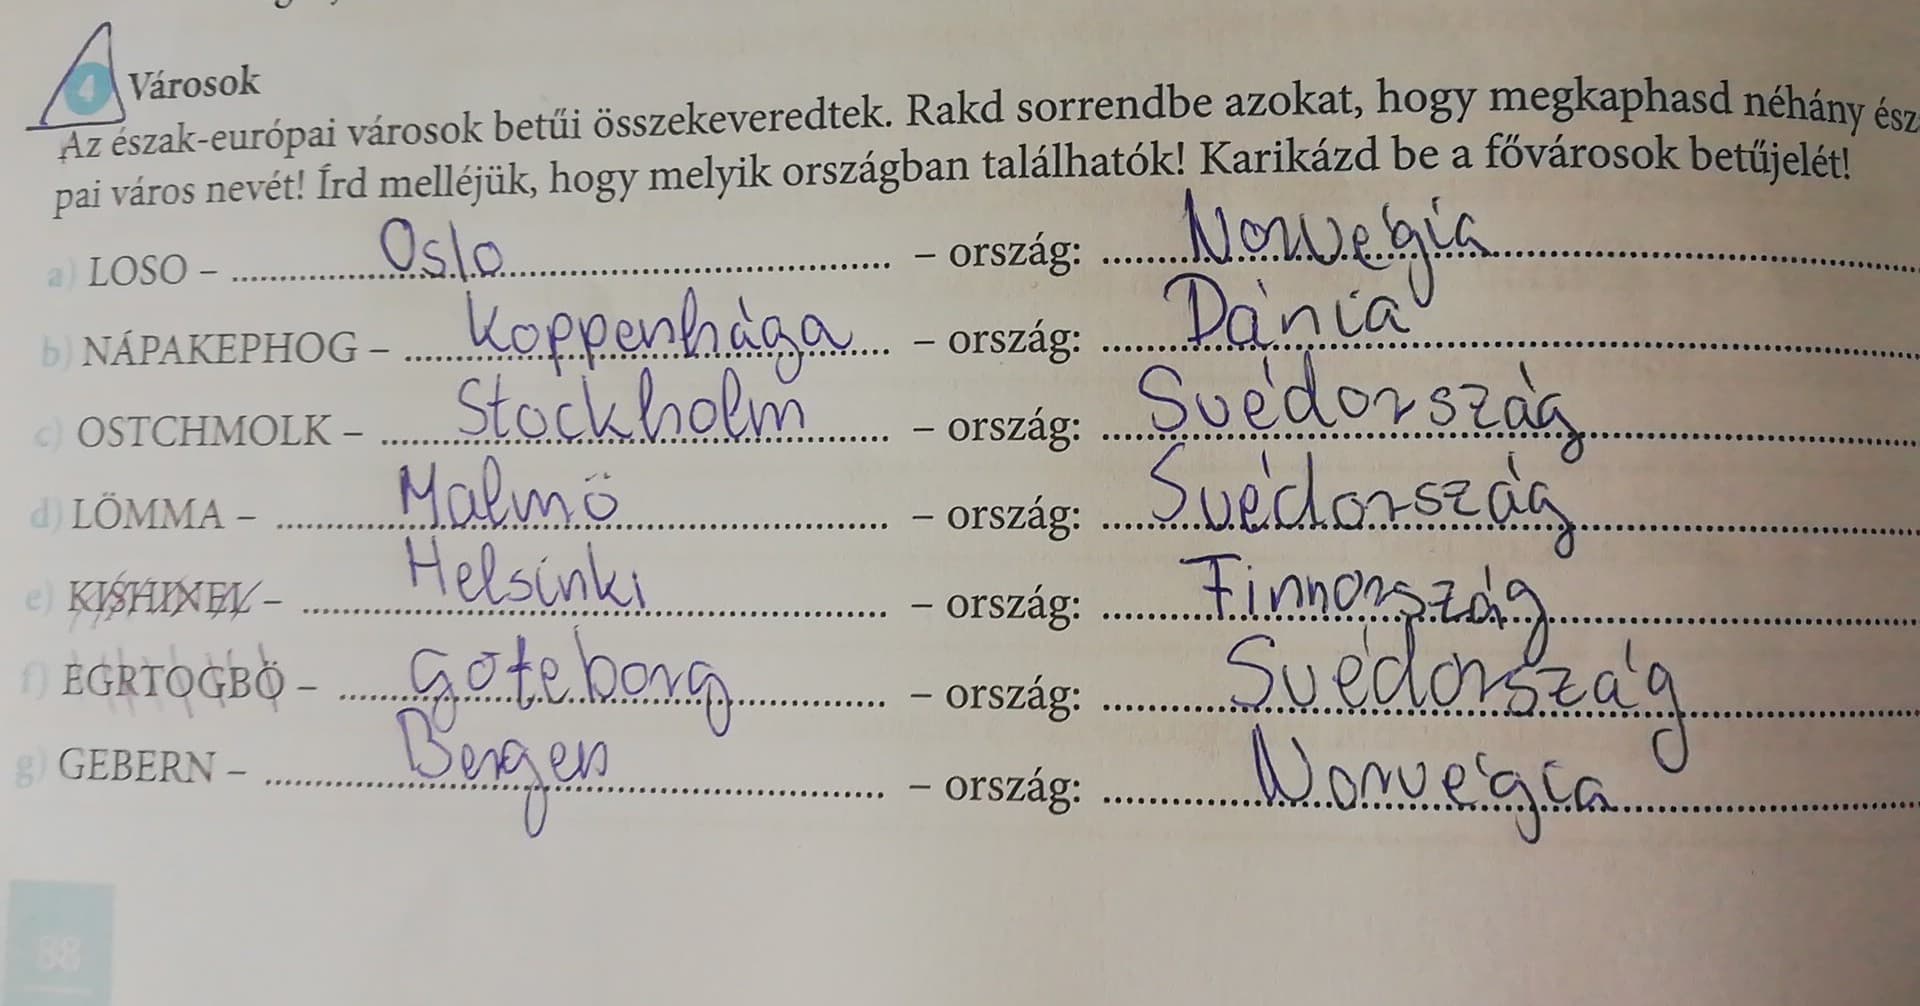 4 Városok
Az észak-európai városok betűi összekeveredtek. Rakd sorrendbe azokat, hogy megkaphasd néhány ész
pai város nevét! Írd melléjük, hogy melyik országban találhatók! Karikázd be a fővárosok betűjelét!
a) LOSO – Oslo – ország: Norvégia
b) NÁPAKEPHOG – Koppenhága – ország: Dánia
c) OSTCHMOLK – Stockholm – ország: Svédország
d) LÖMMA – Malmö – ország: Svédország
e) KISHINEL – Helsinki – ország: Finnország
f) EGRTOGBÖ – Göteborg – ország: Svédország
g) GEBERN – Bergen – ország: Norvégia
88